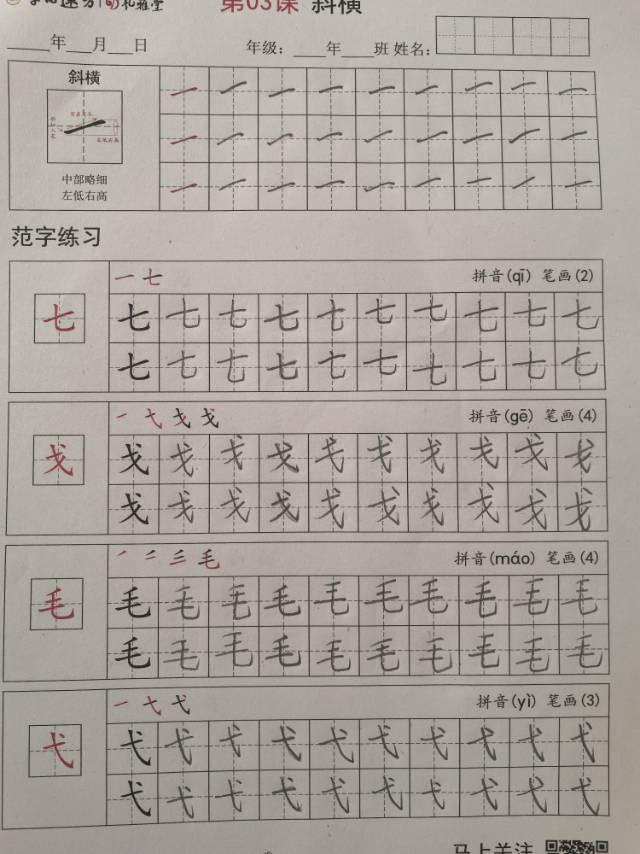 第03课 斜横
___年___月___日 年级：___年___班 姓名：
斜横
中部略细
左低右高
范字练习
一 七 拼音(qī) 笔画(2)
七 七 七 七 七 七 七 七 七 七 七
七 七 七 七 七 七 七 七 七 七
戈 戈 拼音(gē) 笔画(4)
戈 戈 戈 戈 戈 戈 戈 戈 戈 戈 戈
戈 戈 戈 戈 戈 戈 戈 戈 戈 戈
毛 拼音(máo) 笔画(4)
毛 毛 毛 毛 毛 毛 毛 毛 毛 毛 毛
毛 毛 毛 毛 毛 毛 毛 毛 毛 毛
一 弋 拼音(yì) 笔画(3)
弋 弋 弋 弋 弋 弋 弋 弋 弋 弋 弋
弋 弋 弋 弋 弋 弋 弋 弋 弋 弋
马上关注